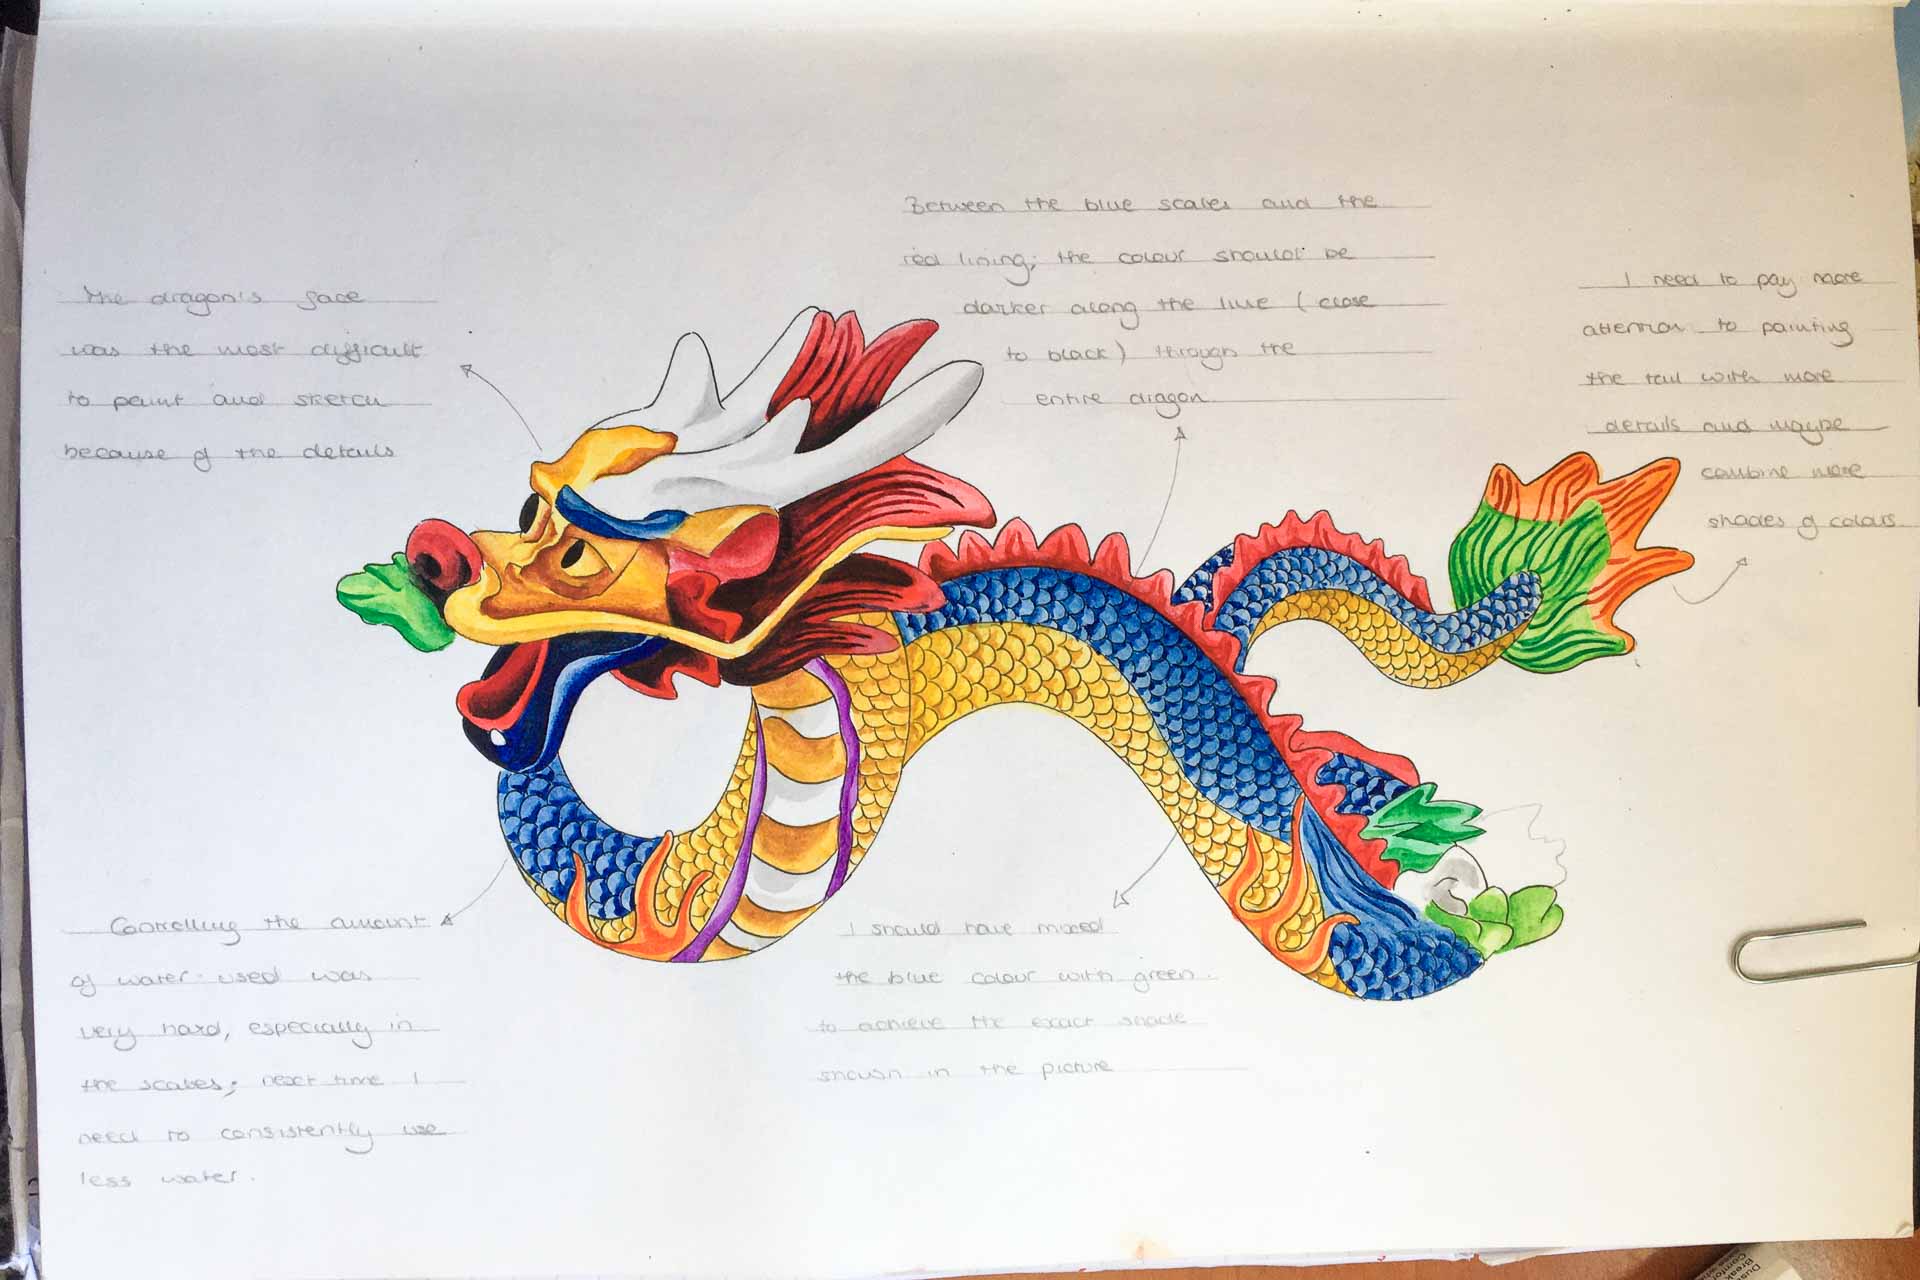 The dragon's face
was the most difficult
to paint and sketch
because of the details
Between the blue scales and the
red lining; the colour should be
darker along the line (close
to black) through the
entire dragon.
I need to pay more
attention to painting
the tail with more
details and maybe
combine more
shades of colours
Controlling the amount
of water used was
very hard, especially in
the scales; next time I
need to consistently use
less water.
I should have mixed
the blue colour with green
to achieve the exact shade
shown in the picture